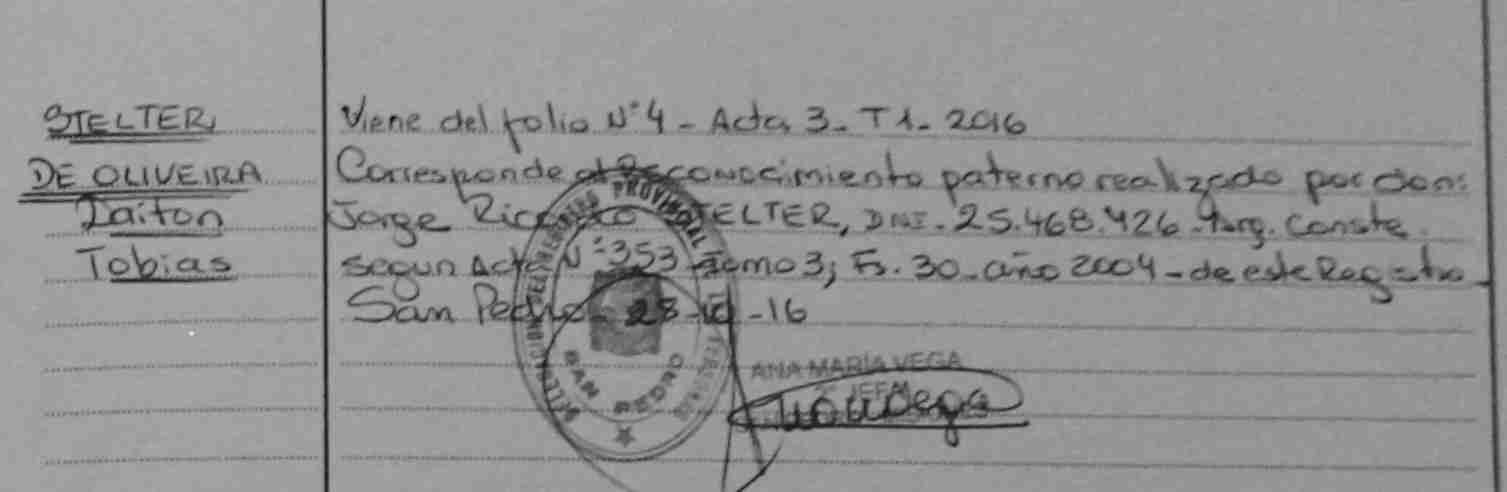 STELTER
DE OLIVEIRA
Daiton
Tobias
Viene del folio N° 4 - Acta 3 - T 1 - 2016
Corresponde al Reconocimiento paterno realizado por don:
Jorge Ricardo STELTER, DNI. 25.468.426 - Arg. Conste
segun Acta N° 353 - Tomo 3; Fs. 30 - año 2004 - de este Registro
San Pedro 28 - - 16
PROVINCIAL
SAN PEDRO
ANA MARÍA VEGA
JEFA